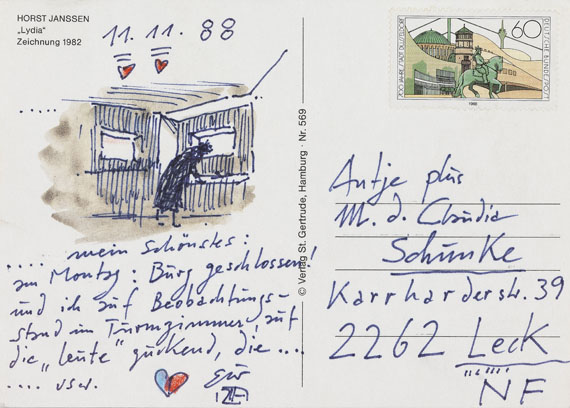 HORST JANSSEN
„Lydia“
Zeichnung 1982
11. 11. 88
.... mein Schönstes:
am Montag: Burg geschlossen!
und ich auf Beobachtungs-
stand im Turmzimmer, auf
die „Leute“ guckend, die ...
.... usw.
Euer
© Verlag St. Gertrude, Hamburg · Nr. 569
60
DEUTSCHE BUNDESPOST
700 JAHRE STADT DÜSSELDORF
1988
Antje plus
M. d. Claudia
Schunke
Karrharderstr. 39
2262 Leck
NF